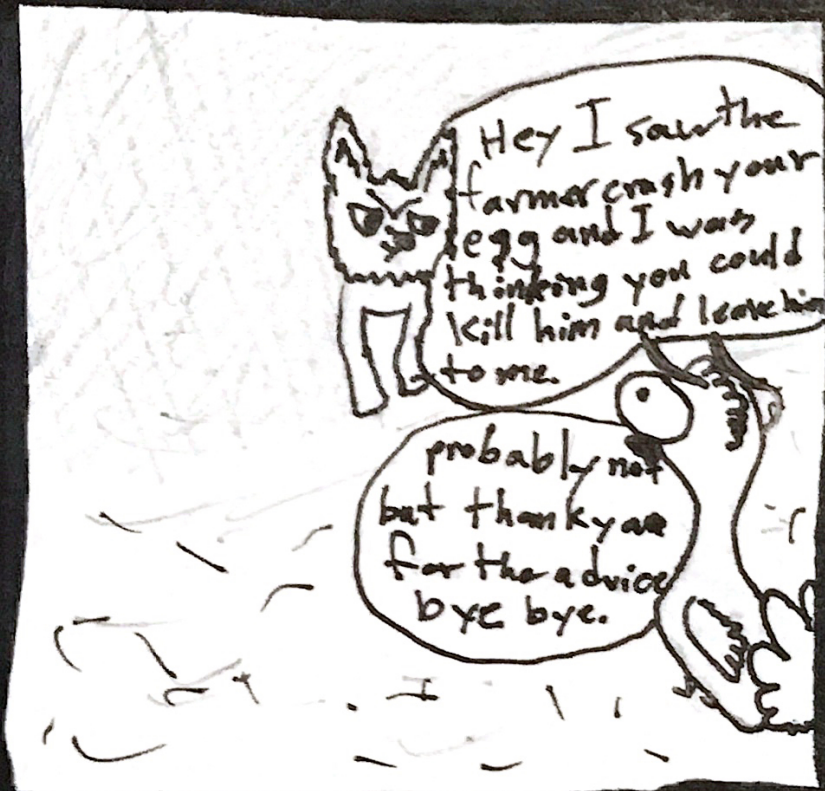 Hey I saw the
farmer crash your
egg and I was
thinking you could
kill him and leave him
to me.
probably not
but thank you
for the advice
bye bye.